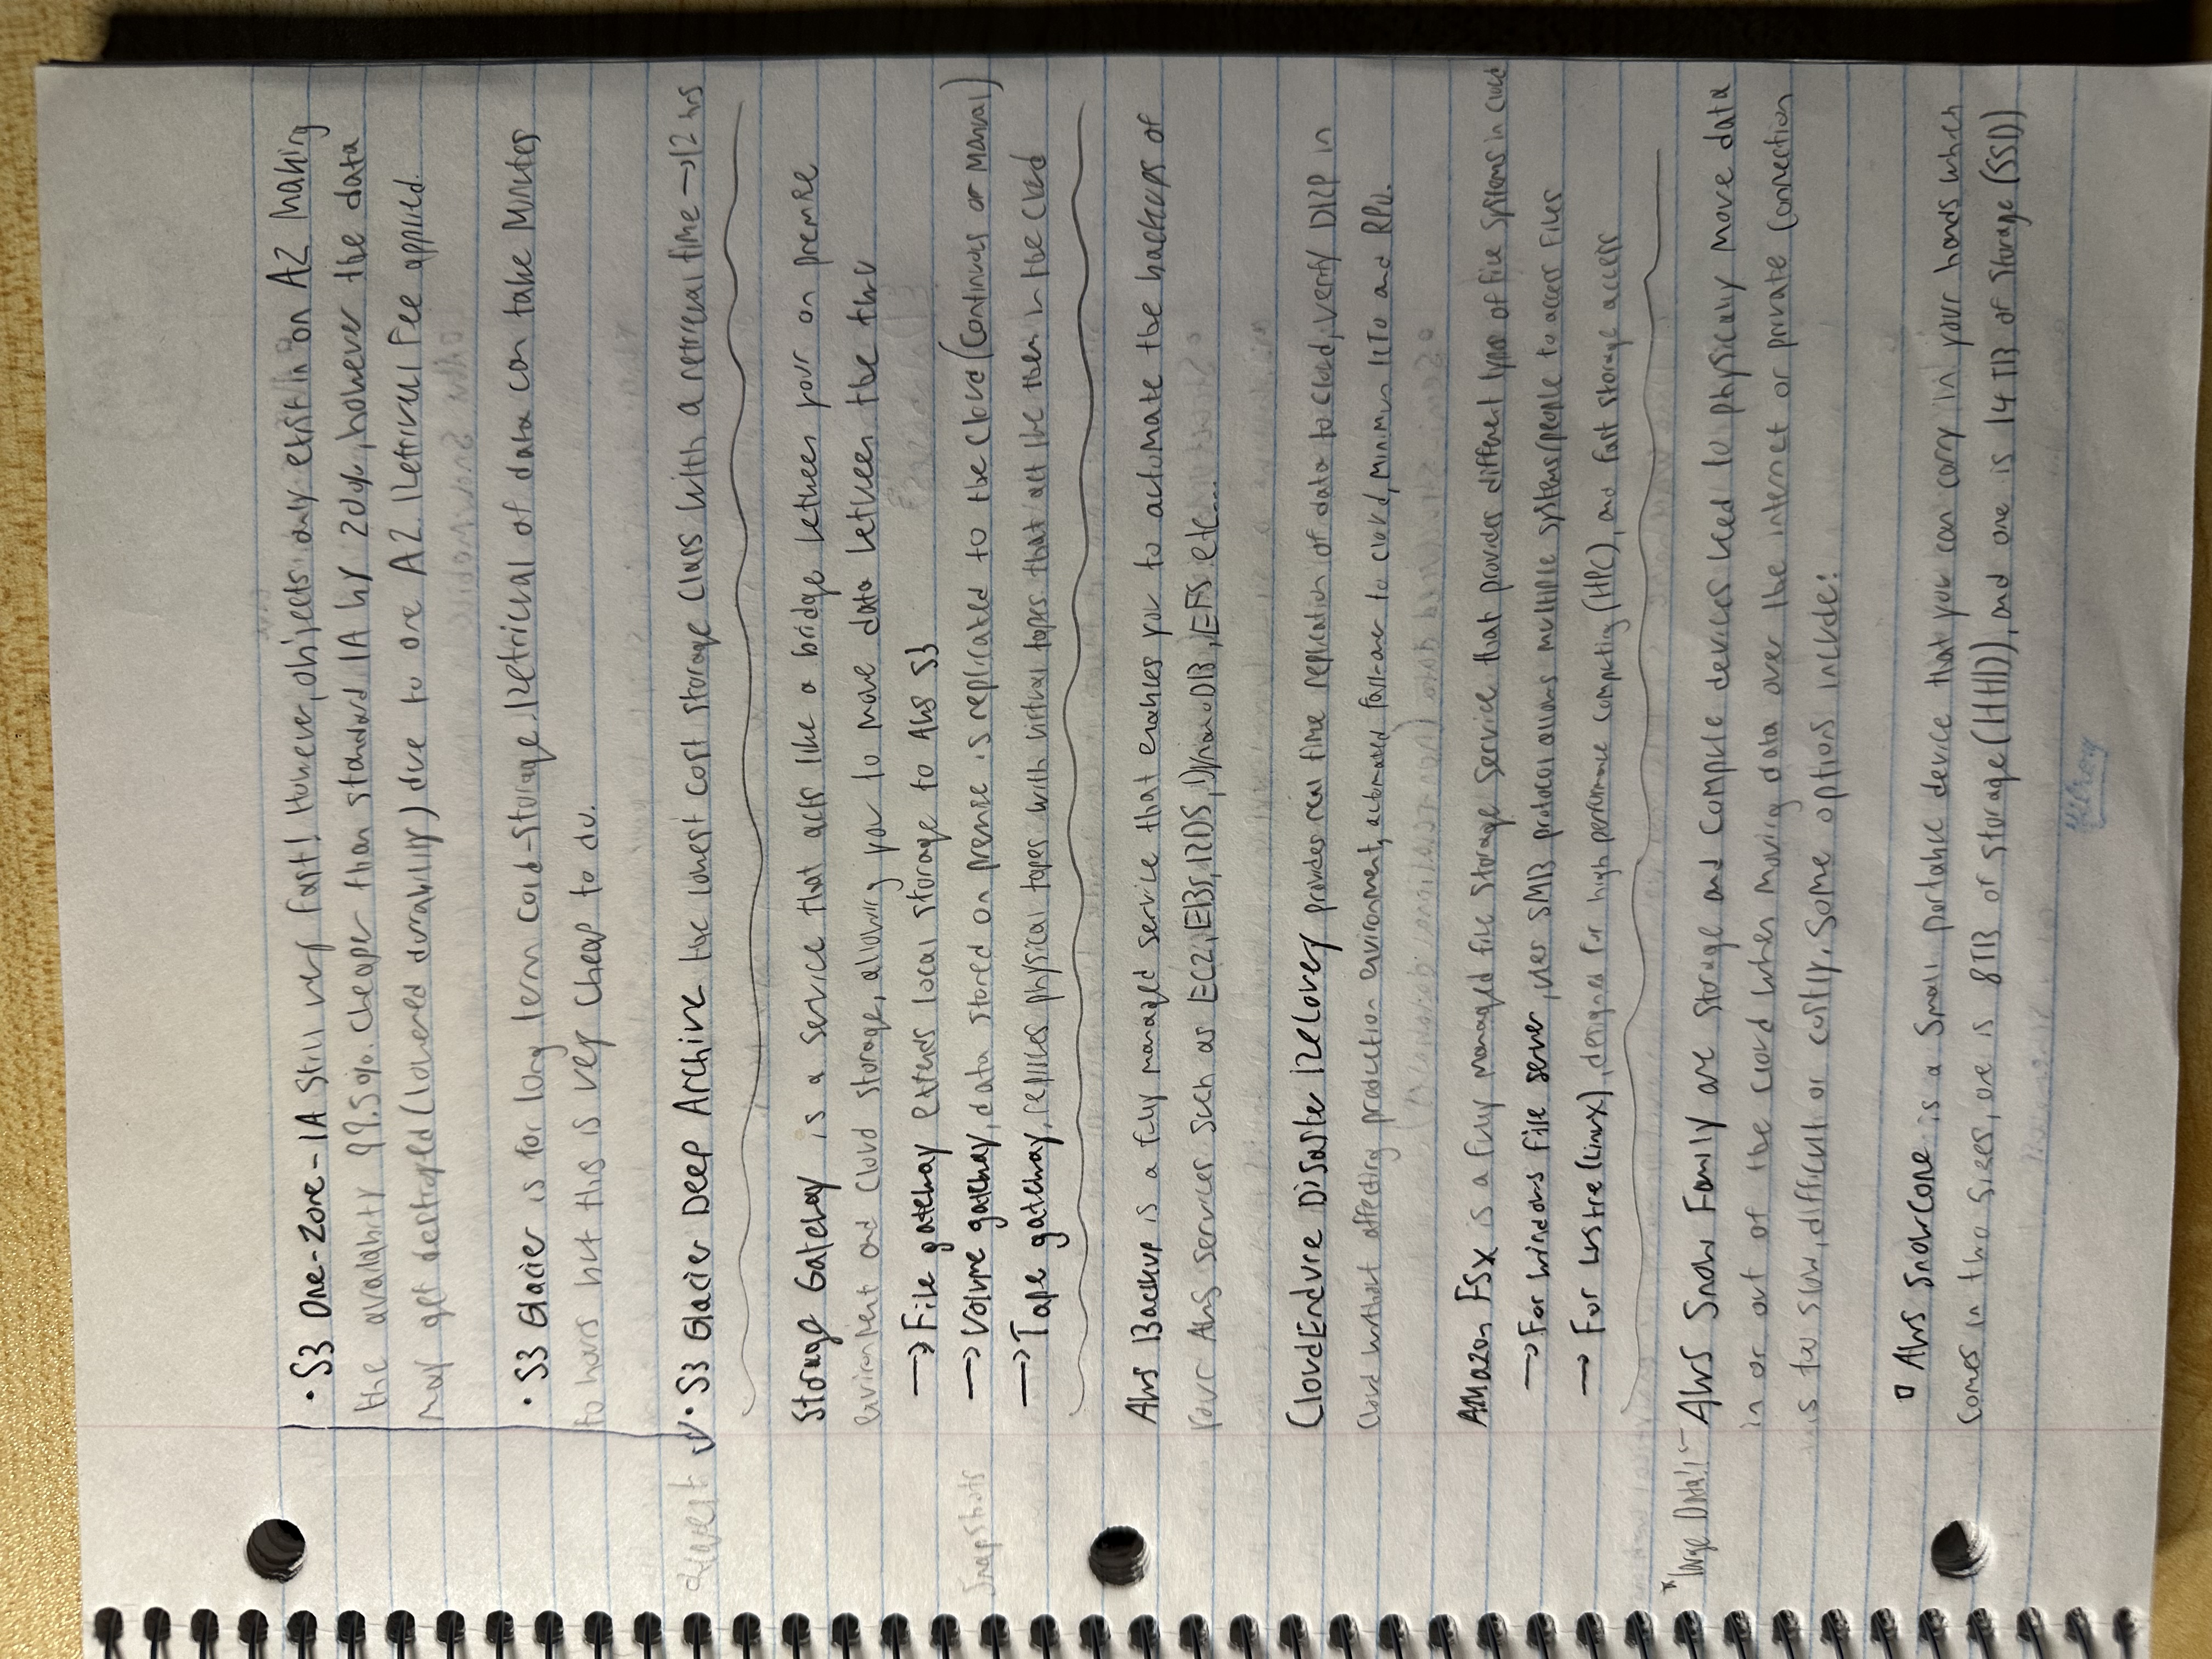 • S3 One-Zone-IA Still very fast! However, objects only exist in on AZ Making
the availability 99.5%. Cheaper than standard IA by 20%, however the data
may get destroyed (lowered durability) due to one AZ. Retrieval Fee applied.
• S3 Glacier is for long term cold-storage. Retrieval of data can take Minutes
to hours but this is very cheap to do.
• S3 Glacier Deep Archive the lowest cost storage class with a retrieval time → 12 hrs
Storage Gateway is a service that acts like a bridge between your on premise
environment and cloud storage, allowing you to move data between the two
→ File gateway extends local storage to AWS S3
Snapshots
→ Volume gateway, data stored on premise is replicated to the cloud (Continuous or Manual)
→ Tape gateway, replices physical tapes with virtual tapes that act like them in the cloud
AWS Backup is a fully managed service that enables you to automate the backups of
your AWS services such as EC2, EBS, RDS, DynamoDB, EFS etc...
CloudEndure Disaster Recovery provides real time replication of data to cloud, verify DRP in
cloud without affecting production environment, automated fail-over to cloud, minimum RTO and RPO.
Amazon FSx is a fully managed file storage service that provides different types of file systems in cloud
→ For windows file server, uses SMB protocol allows multiple systems/people to access files
→ For Lustre (Linux), designed for high performance computing (HPC), and fast storage access
*large Data!!
AWS Snow Family are storage and compute devices used to physically move data
in or out of the cloud when moving data over the internet or private connection
is too slow, difficult or costly. Some options include:
▫ AWS Snowcone is a small portable device that you can carry in your hands which
comes in two sizes, one is 8TB of storage (HHD), and one is 14 TB of storage (SSD)
Hilroy